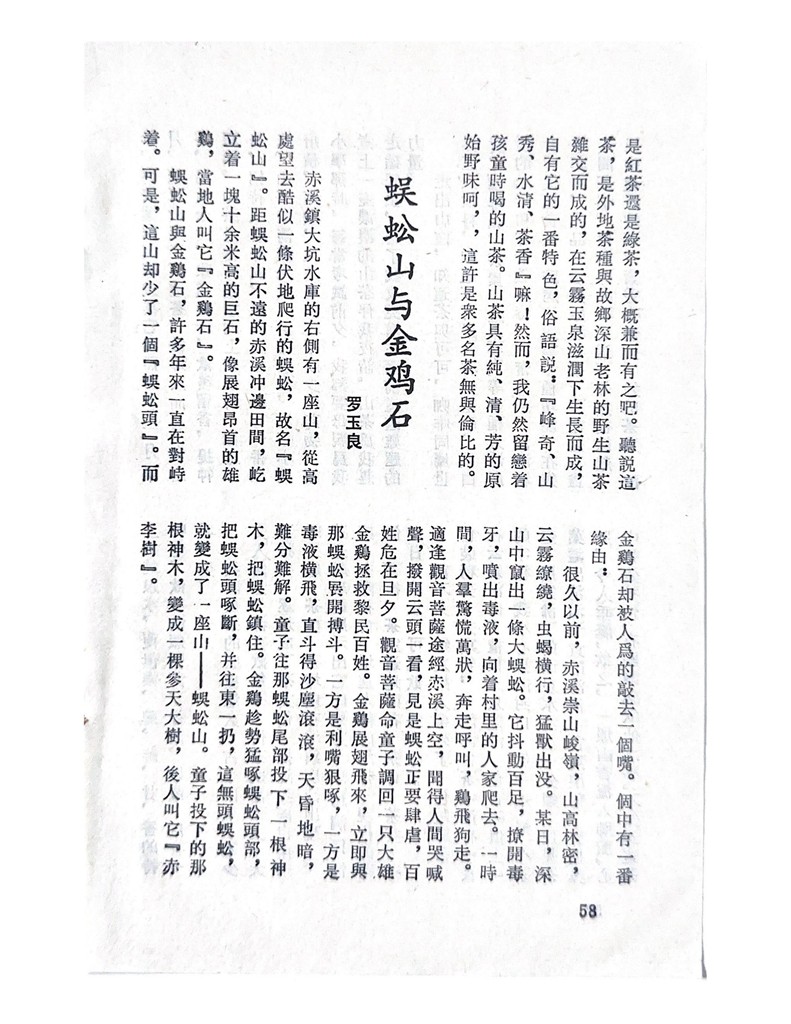 是紅茶還是綠茶，大概兼而有之吧。聽説這
茶，是外地茶種與故鄉深山老林的野生山茶
雜交而成的，在云霧玉泉滋潤下生長而成，
自有它的一番特色，俗語説：『峰奇、山
秀、水清、茶香』嘛！然而，我仍然留戀着
孩童時喝的山茶。山茶具有純、清、芳的原
始野味呵，，這許是衆多名茶無與倫比的。
蜈蚣山与金鸡石
罗玉良
赤溪鎮大坑水庫的右側有一座山，從高
處望去酷似一條伏地爬行的蜈蚣，故名『蜈
蚣山』。距蜈蚣山不遠的赤溪冲邊田間，屹
立着一塊十余米高的巨石，像展翅昂首的雄
鷄，當地人叫它『金鷄石』。
蜈蚣山與金鷄石，許多年來一直在對峙
着。可是，這山却少了一個『蜈蚣頭』。而
金鷄石却被人爲的敲去一個嘴。個中有一番
緣由：
很久以前，赤溪崇山峻嶺，山高林密，
云霧繚繞，虫蝎横行，猛獸出没。某日，深
山中竄出一條大蜈蚣。它抖動百足，撩開毒
牙，噴出毒液，向着村里的人家爬去。一時
間，人羣驚慌萬狀，奔走呼叫，鷄飛狗走。
適逢觀音菩薩途經赤溪上空，聞得人間哭喊
聲，撥開云頭一看，見是蜈蚣正要肆虐，百
姓危在旦夕。觀音菩薩命童子調回一只大雄
金鷄拯救黎民百姓。金鷄展翅飛來，立即與
那蜈蚣展開搏斗。一方是利嘴狠啄，一方是
毒液横飛，直斗得沙塵滚滚，天昏地暗，
難分難解。童子往那蜈蚣尾部投下一根神
木，把蜈蚣鎮住。金鷄趁勢猛啄蜈蚣頭部，
把蜈蚣頭啄斷，并往東一扔，這無頭蜈蚣，
就變成了一座山——蜈蚣山。童子投下的那
根神木，變成一棵參天大樹，後人叫它『赤
李樹』。
58